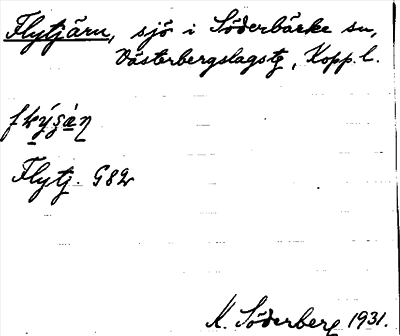 Flytjärn, sjö i Söderbärke sn,
Västerbergslagstg, Kopp. l.
Flytj. G82v
K. Söderberg 1931.